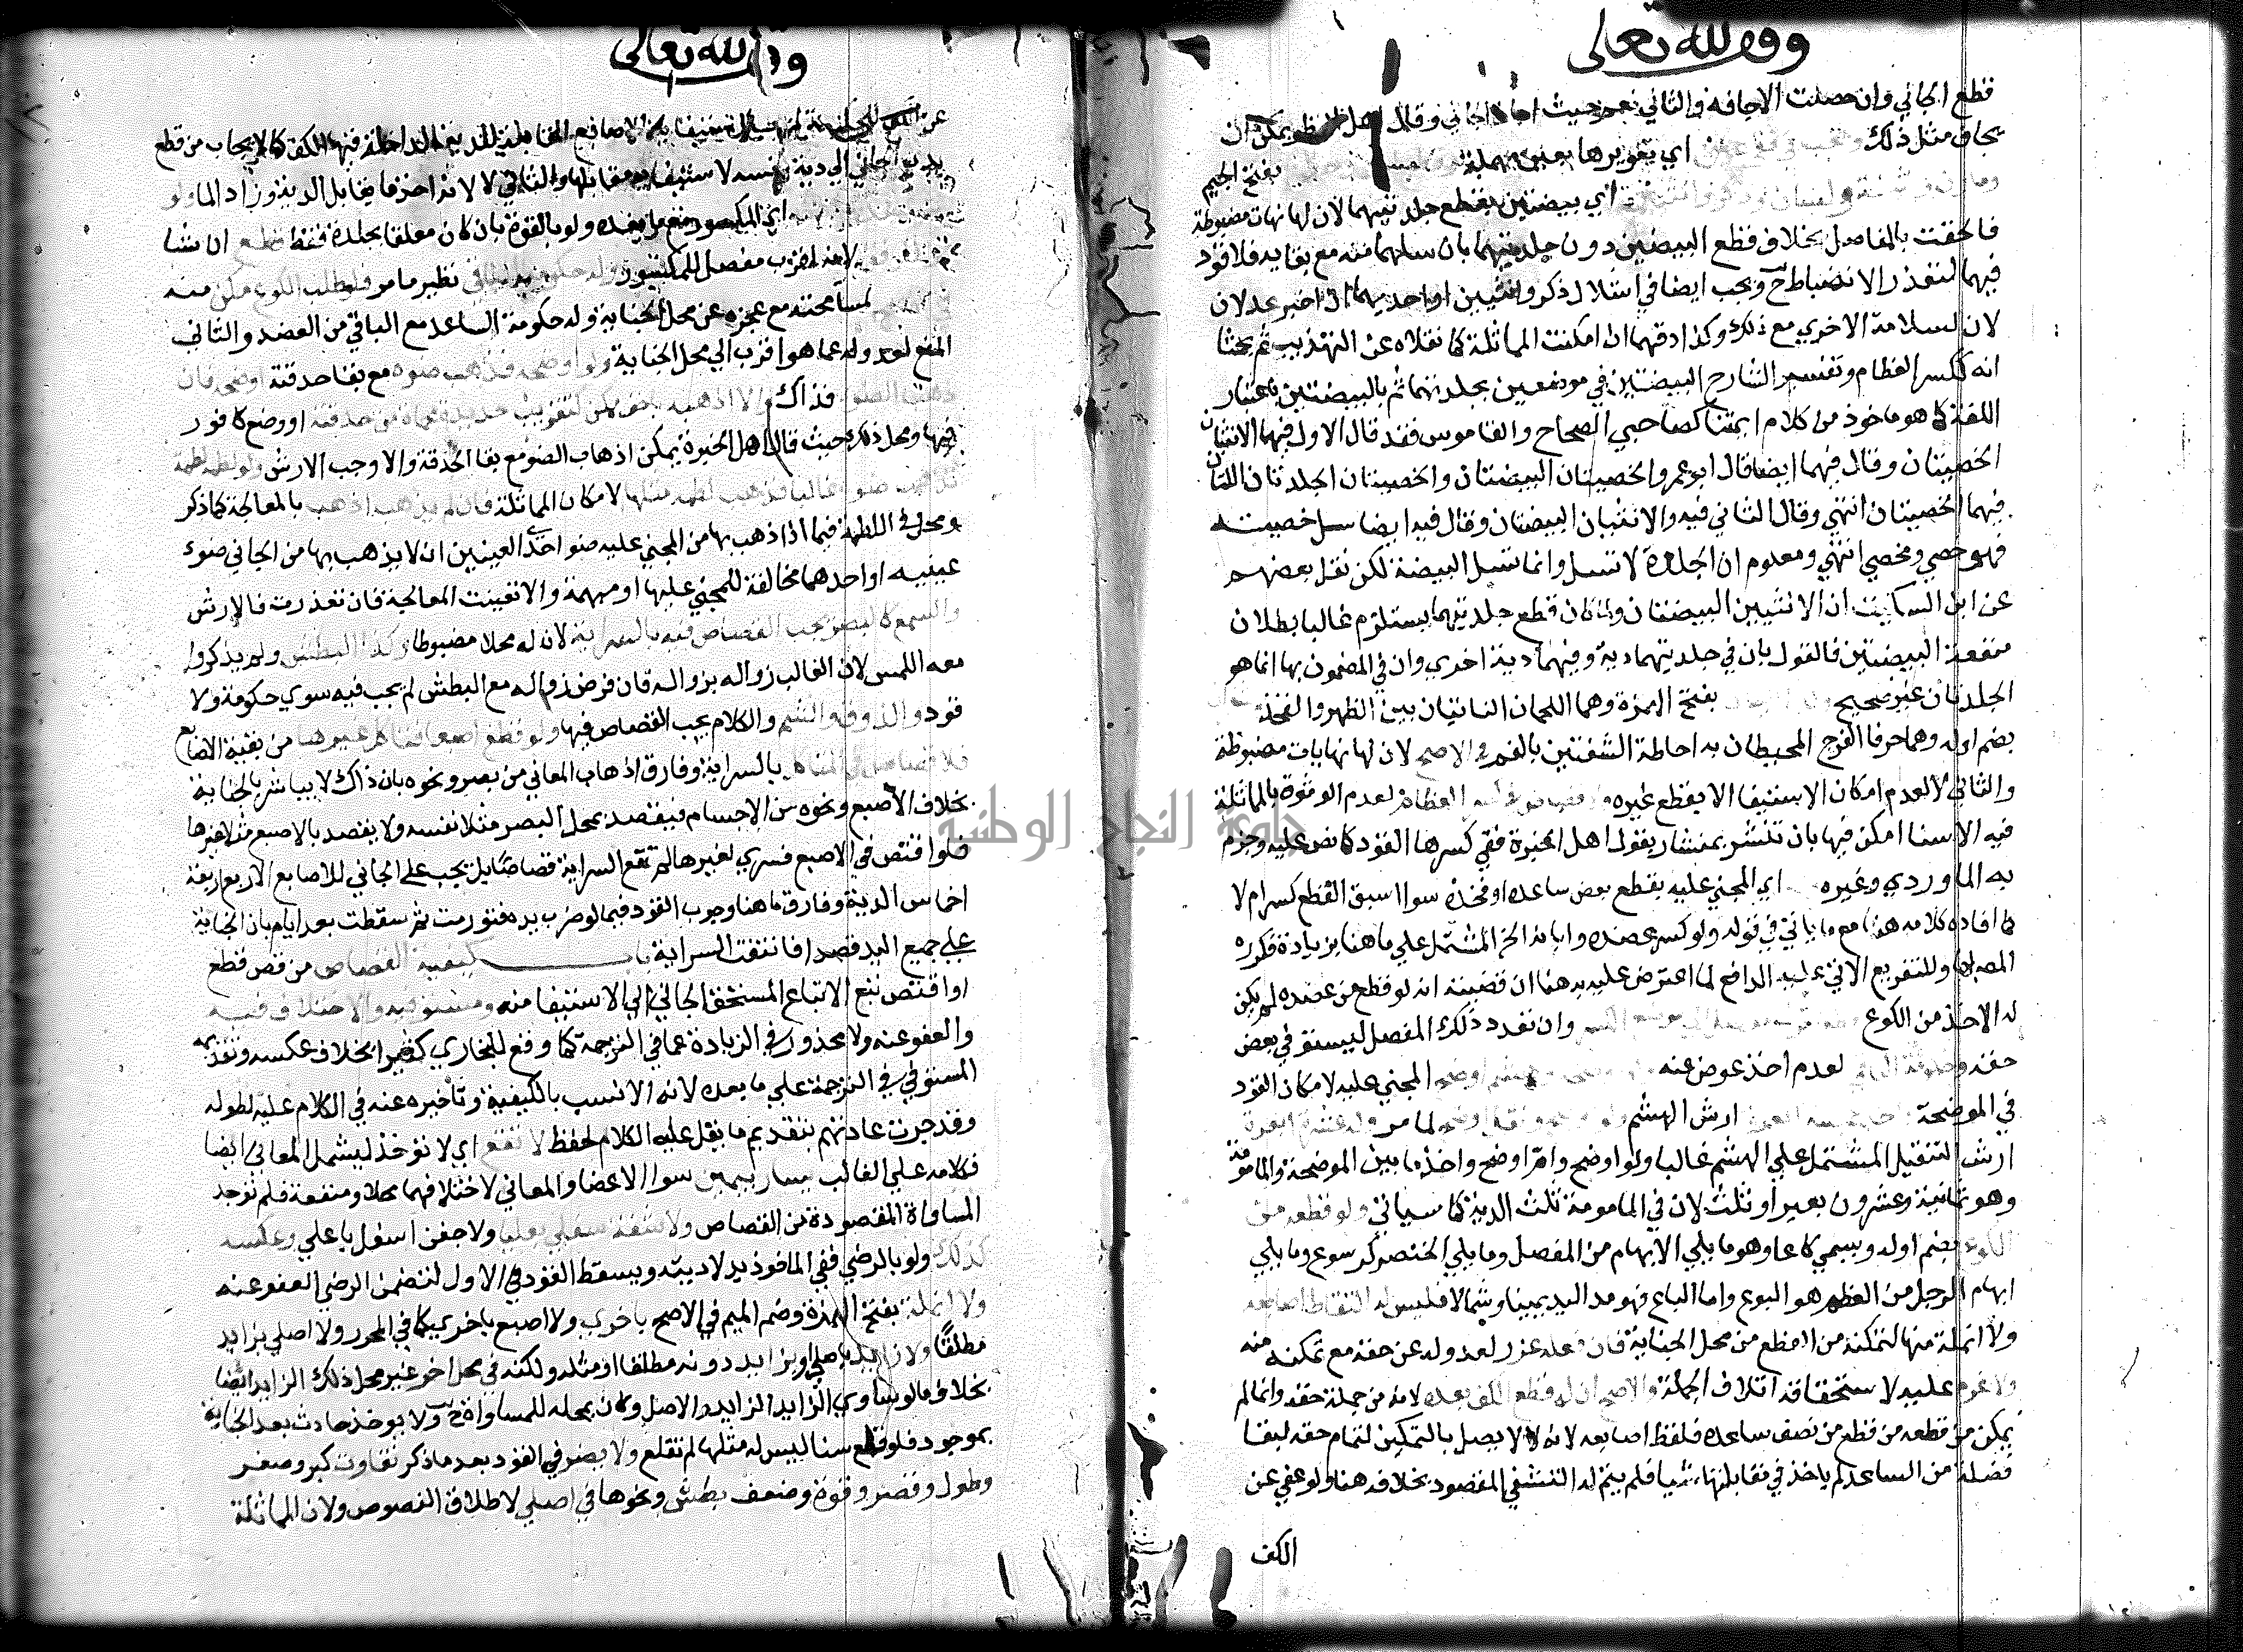 وقف لله تعالى
قطع الجاني وان حصلت الاجافة والثاني نعم حيث اجاف الجاني وقال اهل النظر يمكن ان
يجاف مثل ذلك وتجب في فقء عين اي بتعويرها بعين مهملة بفتح الجيم
اي بيضتين بقطع جلدتيهما لان لها نهايات مضبوطة
فالحقت بالمفاصل بخلاف قطع البيضتين دون جلدتيهما بان سلهما منه مع بقايه فلا قود
فيهما لتعذر الانضباط ح ويجب ايضا في اشلال ذكر وانثيين او احديهما ان اخبر عدلان
لان لسلامة الاخري مع ذلك وكذا دقهما ان امكنت المماثلة كما نقلاه عن التهذيب ثم بحثا
انه ككسر العظام وتفسير الشارح البيضتين في موضعين بجلدتهما ثم بالبيضتين باعتبار
اللغة كما هو ماخوذ من كلام ايمتنا كصاحبي الصحاح والقاموس فقد قال الاول فيها الانثيان
الخصيتان وقال فيهما ايضا قال ابو عمرو الخصيتان البيضتان والخصيتان الجلدتان اللتان
فيهما الخصيتان انتهي وقال الثاني فيه والانثيان البيضتان وقال فيه ايضا سل خصيته
فهو خصي ومخصي انتهي ومعلوم ان الجلدة لا تسل وانما تسل البيضة لكن نقل بعضهم
عن ابن السكيت ان الانثيين البيضتان ولما كان قطع جلدتيهما يستلزم غالبا بطلان
منفعة البيضتين فالقول بان في جلدتيهما دية وفيهما دية اخري وان في المضمون بها انما هو
الجلدتان غير صحيح بفتح الهمزة وهما اللحمان الناتيان بين الظهر والفخذ
بضم اوله وهما حرفا الفرج المحيطان به احاطة الشفتين بالفم في الاصح لان لها نهايات مضبوطة
والثاني لا لعدم امكان الاستيفا الا بقطع غيره العظام لعدم الوثوق بالمماثلة
فيه الا سنا امكن فيها بان تنشر بمنشار بقول اهل الخبرة ففي كسرها القود كما نص عليه وجزم
به الماوردي وغيره اي المجني عليه بقطع بعض ساعده او فخذه سوا اسبق القطع كسر ام لا
كما افاده كلامه هنا مع ما ياتي في قوله ولو كسر عضده وابانه الخ المشتمل علي ما هنا بزيادة فكرره
للتفريع الاتي عليه الدافع لما اعترض عليه به هنا ان قضيته انه لو قطع من عضده لم يكن
له الاخذ من الكوع وان تعدد ذلك المفصل ليستوفي بعض
حقه لعدم اخذ عوض عنه المجني عليه لامكان القود
في الموضحة ارش الهشم لما مر
ارش التنقيل المشتمل علي الهشم غالبا ولو اوضح وام اوضح واخذ ما بين الموضحة والمامومة
وهو ثمانية وعشرون بعيرا وثلث لان في المامومة ثلث الدية كما سياتي ولو قطعه من
الكوع بضم اوله ويسمي كاعا وهو ما يلي الابهام من المفصل وما يلي الخنصر كرسوع وما يلي
ابهام الرجل من العظم هو البوع واما الباع فهو مد اليد يمينا وشمالا فليس له التقاط اصابعه
ولا انملة منها لتمكنه من القطع من محل الجناية فان فعله عزر لعدوله عن حقه مع تمكنه منه
ولا غرم عليه لاستحقاقه اتلاف الجملة والاصح ان له قطع الكف بعده لانه من جملة حقه وانما لم
يمكن من قطعه من قطع من نصف ساعده فلقط اصابعه لانه لا يصل بالتمكين لتمام حقه لبقا
فضلة من الساعد لم ياخذ في مقابلتها شيا فلم يتم له التشفي المقصود بخلافه هنا ولو عفي عن
الكف
وقف لله تعالى
الاصابع الداخلة فيها الكف كما لا يجاب من قطع
يدي الجاني الي دية نفسه لاستيفايه مقابلها والثاني لا لانه اخذ ما يقابل الدية وزاد الما ولو
اي المكسور مع ما بعده ولو بالقوة بان كان معلقا بجلدة فقط قطع ان شا
لانه اقرب مفصل للمكسور وله حكومة الباقي نظير ما مر فلو طلب الكوع مكن منه
لمسامحته مع عجزه عن محل الجناية وله حكومة الساعد مع الباقي من العضد والثاني
المنع لعدوله عما هو اقرب الي محل الجناية ولو اوضحه فذهب ضوه مع بقا حدقته اوضحه فان
ذهب الضو فذاك والا اذهبه باخف ممكن كتقريب حديدة محماة من حدقته او وضع كافور
فيها ومحل ذلك حيث قال اهل الخبرة يمكن اذهاب الضو مع بقا الحدقة والا وجب الارش ولو لطمه لطمة
تذهب ضوه غالبا فذهب لطمه مثلها لامكان المماثلة فان لم يذهب اذهب بالمعالجة كما ذكر
ومحل في اللطمة فيما اذا ذهب بها من المجني عليه ضو احدي العينين ان لا يذهب بها من الجاني ضوء
عينيه او احدهما مخالفة للمجني عليها او مبهمة والا تعينت المعالجة فان تعذرت فالارش
والسمع كالبصر يجب القصاص فيه بالسراية لان له محلا مضبوطا وكذا البطش ولم يذكروا
معه اللمس لان الغالب زواله بزواله فان فرض زواله مع البطش لم يجب فيه سوي حكومة ولا
قود والذوق والشم والكلام يجب القصاص فيها ولو قطع اصبعا فتاكل غيرها من بقية الاصابع
فلا قصاص في المتاكل بالسراية وفارق اذهاب المعاني من بصر ونحوه بان ذاك لا يباشر بالجناية
بخلاف الاصبع ونحوه من الاجسام فيقصد بمحل البصر مثلا نفسه ولا يقصد بالاصبع مثلا غيرها
فلو اقتص في الاصبع فسري لغيرها لم تقع السراية قصاصا بل يجب علي الجاني للاصابع الاربع اربعة
اخماس الدية وفارق ما هنا وجوب القود فيما لو ضرب يده فتورمت ثم سقطت بعد ايام بان الجناية
علي جميع اليد قصدا فانتفت السراية باب كيفية القصاص من قص قطع
او اقتص تبع لاتباع المستحق الجاني الي الاستيفا منه ومستوفيه والاختلاف فيه
والعفو عنه ولا محذور في الزيادة عما في الترجمة كما وقع للبخاري كثيرا بخلاف عكسه وتقديمه
المستوفي في الترجمة علي ما بعده لانه الانسب بالكيفية وتاخيره عنه في الكلام عليه لطوله
وقد جرت عادتهم بتقديم ما يقل عليه الكلام لحفظ لا تقطع اي لا تؤخذ ليشمل المعاني ايضا
فكلامه علي الغالب يسار بيمين سوا الاعضا والمعاني لاختلافهما محلا ومنفعة فلم توجد
المساواة المقصودة من القصاص ولا شفة سفلي بعليا ولا جفن اسفل باعلي وعكسه
كذلك ولو بالرضي ففي الماخوذ بدلا دية ويسقط القود في الاول لتضمن الرضي العفو عنه
ولا انملة بفتح الهمزة وضم الميم في الاصح باخري ولا اصبع باخري كما في المحرر ولا اصلي بزايد
مطلقا ولا زايد باصلي او بزايد دونه مطلقا او مثله ولكنه في محل اخر غير محل ذلك الزايد ايضا
بخلاف ما لو ساوي الزايد الزايد والاصل وكان بمحله للمساواة ح ولا يوخذ حادث بعد الجناية
بموجود فلو قلع سنا ليس له مثلها لم تقلع ولا يضر في القود بعد ما ذكر تفاوت كبر وصغر
وطول وقصر وقوة وضعف بطش ونحوها في اصلي لاطلاق النصوص ولان المماثلة
جامعة النجاح الوطنية